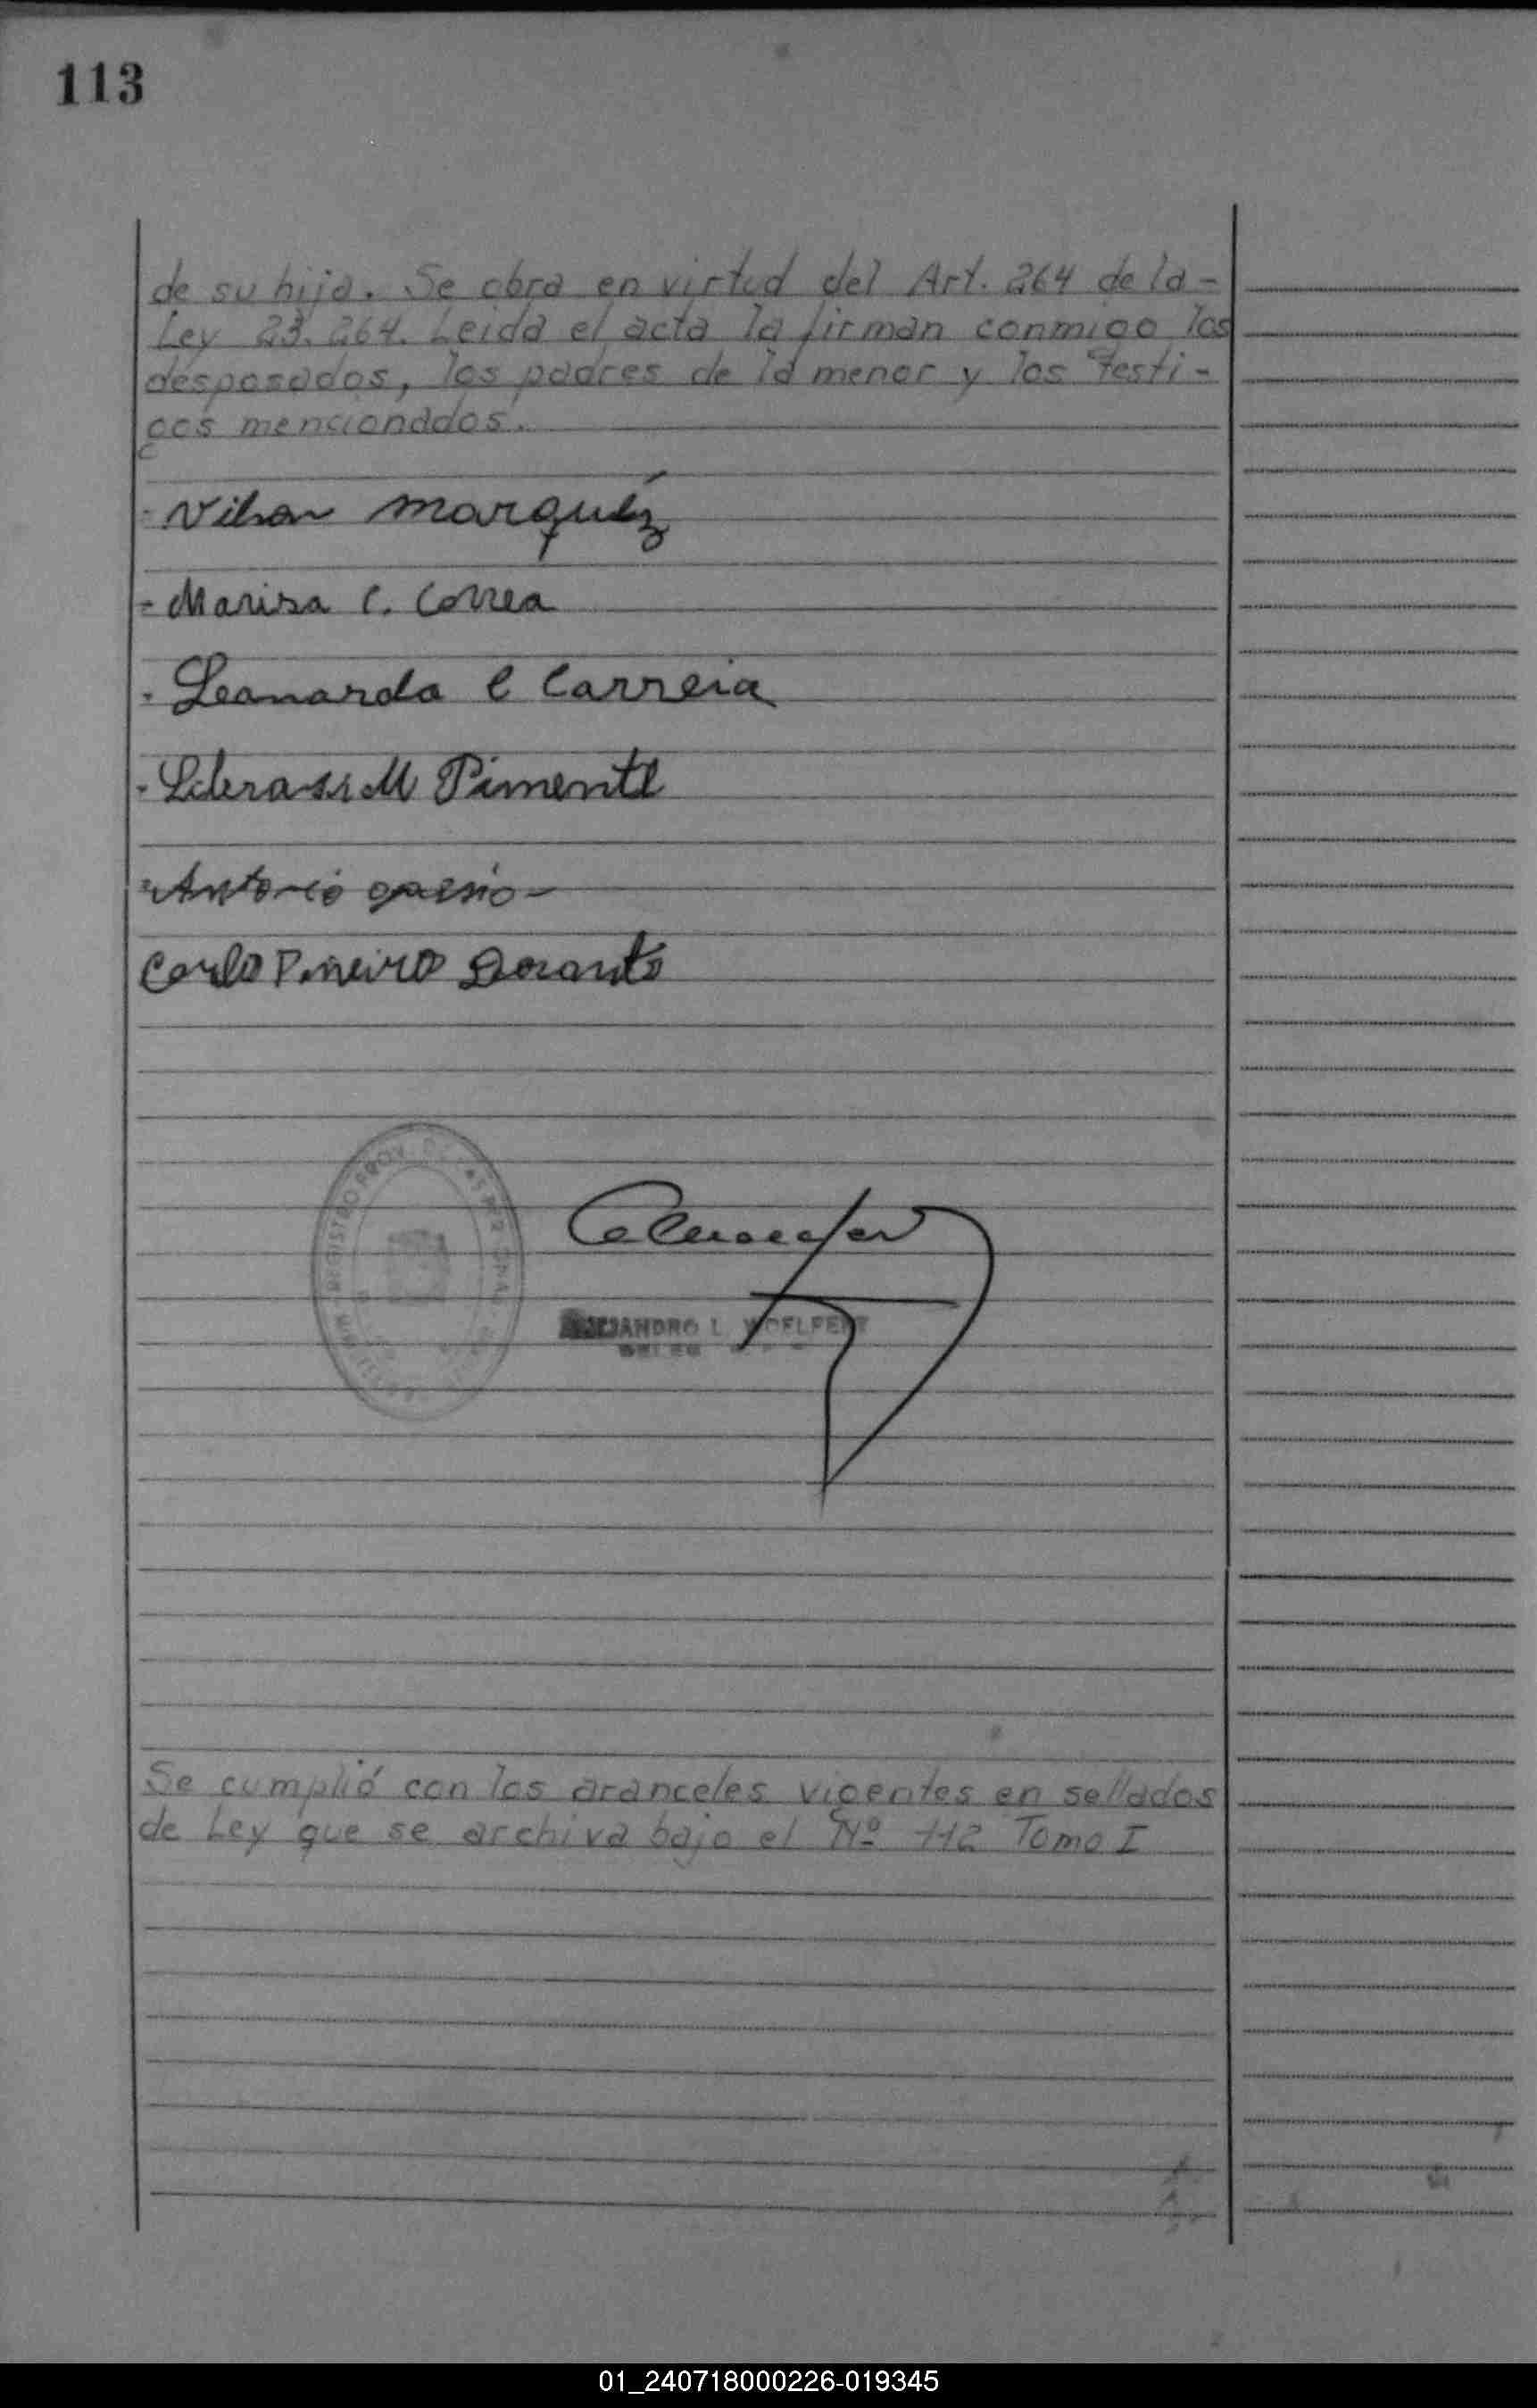 113
de su hija. Se obra en virtud del Art. 264 de la -
Ley 23.264. Leida el acta la firman conmigo los
desposados, los padres de la menor y los testi-
gos mencionados.
marquéz
- Marisa C. Correa
- Leonardo C Correia
M Pimentel
Antonio
REGISTRO PROV. DE LAS PER
ALEJANDRO L. WOELFERT
Se cumplió con los aranceles vigentes en sellados
de Ley que se archiva bajo el Nº 112 Tomo I
01_240718000226-019345